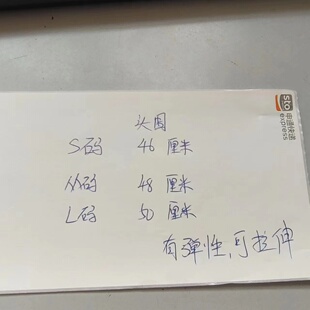 sto
申通快递
express
头围
S码 46 厘米
M码 48 厘米
L码 50 厘米
有弹性,可拉伸